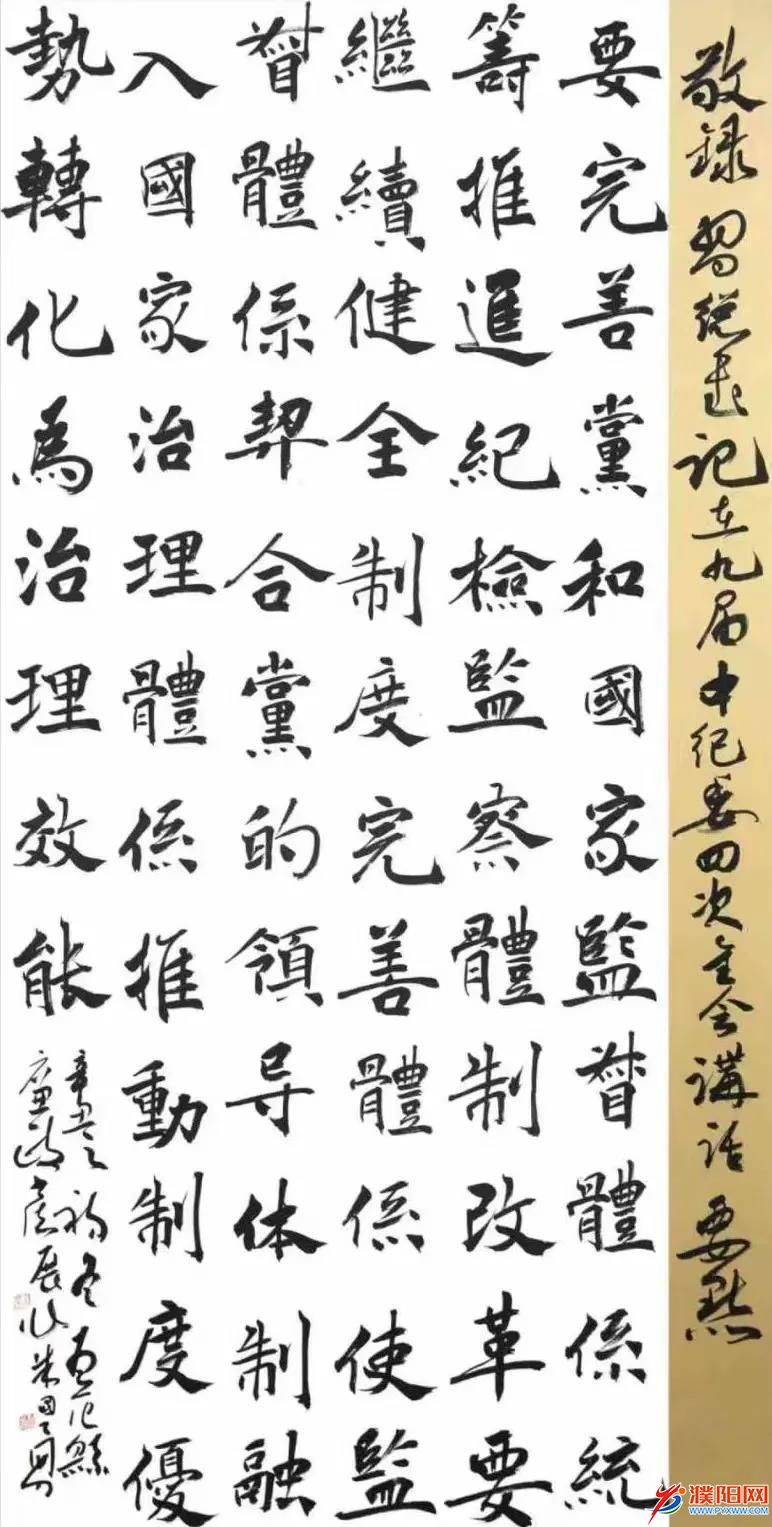 敬録習總書記在九届中纪委四次全会講话要點
要完善黨和國家監督體係統
籌推進紀檢監察體制改革要
繼續健全制度完善體係使監
督體係契合黨的領导体制融
入國家治理體係推動制度優
勢轉化為治理效能
辛丑之初冬
濮阳网
WWW.PYXWW.COM